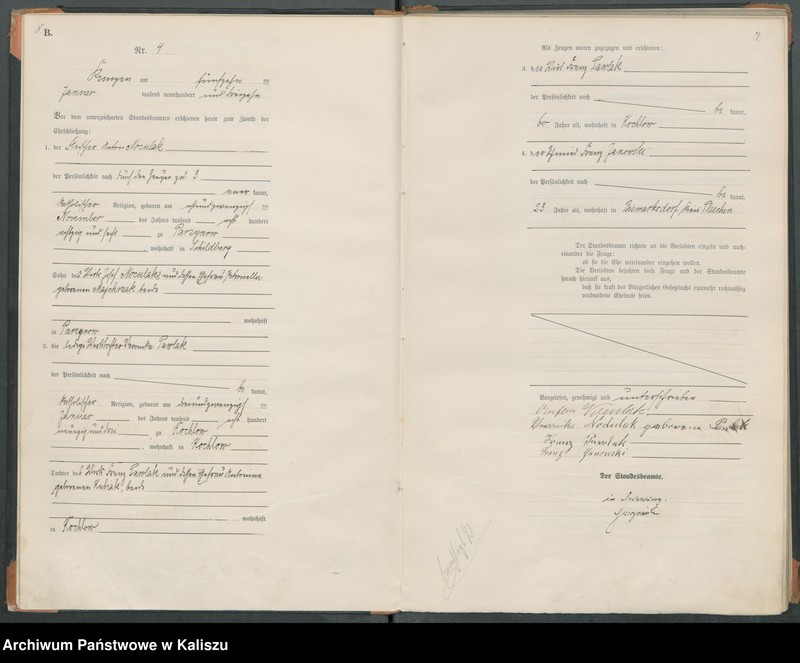 B.
Nr. 4
Kempen am fünfzehn ten
Januar tausend neunhundert und dreizehn
Vor dem unterzeichneten Standesbeamten erschienen heute zum Zwecke der
Eheschließung:
1. der Anton
der Persönlichkeit nach durch den Zeugen zu 3
kannt,
katholischer Religion, geboren am achtundzwanzigsten
November des Jahres tausend acht hundert
achtzig und sechs zu Parzynow
, wohnhaft in Schildberg
Sohn des Wirts Josef und dessen Ehefrau Petronella
geborenen Majchrzak, beide
wohnhaft
in Parzynow
2. die ledige Wirtstochter Veronika Pawlak
der Persönlichkeit nach
be kannt,
katholischer Religion, geboren am dreiundzwanzigsten
Januar des Jahres tausend acht hundert
neunzig und drei zu Kochlow
, wohnhaft in Kochlow
Tochter des Wirts Franz Pawlak und dessen Ehefrau Antonina
geborenen Kubiak, beide
wohnhaft
in Kochlow
Als Zeugen waren zugezogen und erschienen:
3. der Wirt Franz Pawlak
der Persönlichkeit nach
be kannt,
60 Jahre alt, wohnhaft in Kochlow
4. der Franz Janowski
der Persönlichkeit nach
be kannt,
23 Jahre alt, wohnhaft in Bismarksdorf, Kreis Pleschen
Der Standesbeamte richtete an die Verlobten einzeln und nach-
einander die Frage:
ob sie die Ehe miteinander eingehen wollen.
Die Verlobten bejahten diese Frage und der Standesbeamte
sprach hierauf aus,
daß sie kraft des Bürgerlichen Gesetzbuchs nunmehr rechtmäßig
verbundene Eheleute seien.
Vorgelesen, genehmigt und unterschrieben
geborene Pawlak
Franz Pawlak
Franz Janowski
Der Standesbeamte.
in Vertretung.
Archiwum Państwowe w Kaliszu